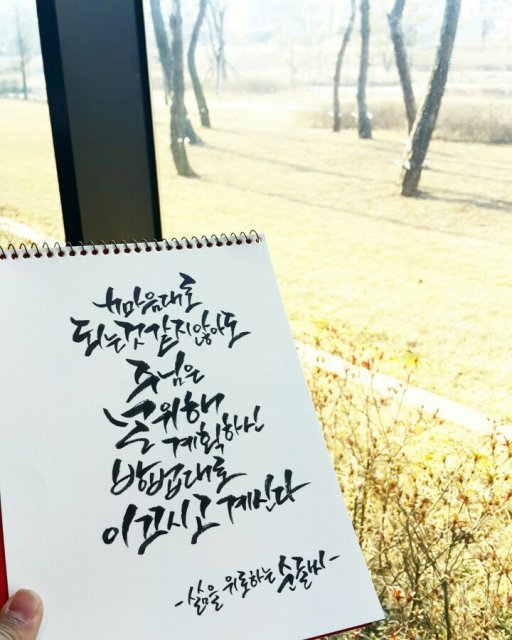 내마음대로
되는것 같지 않아도
주님은
널 위해
계획하신
방법대로
이끄시고 계신다
-삶을 위로하는 손돌비-